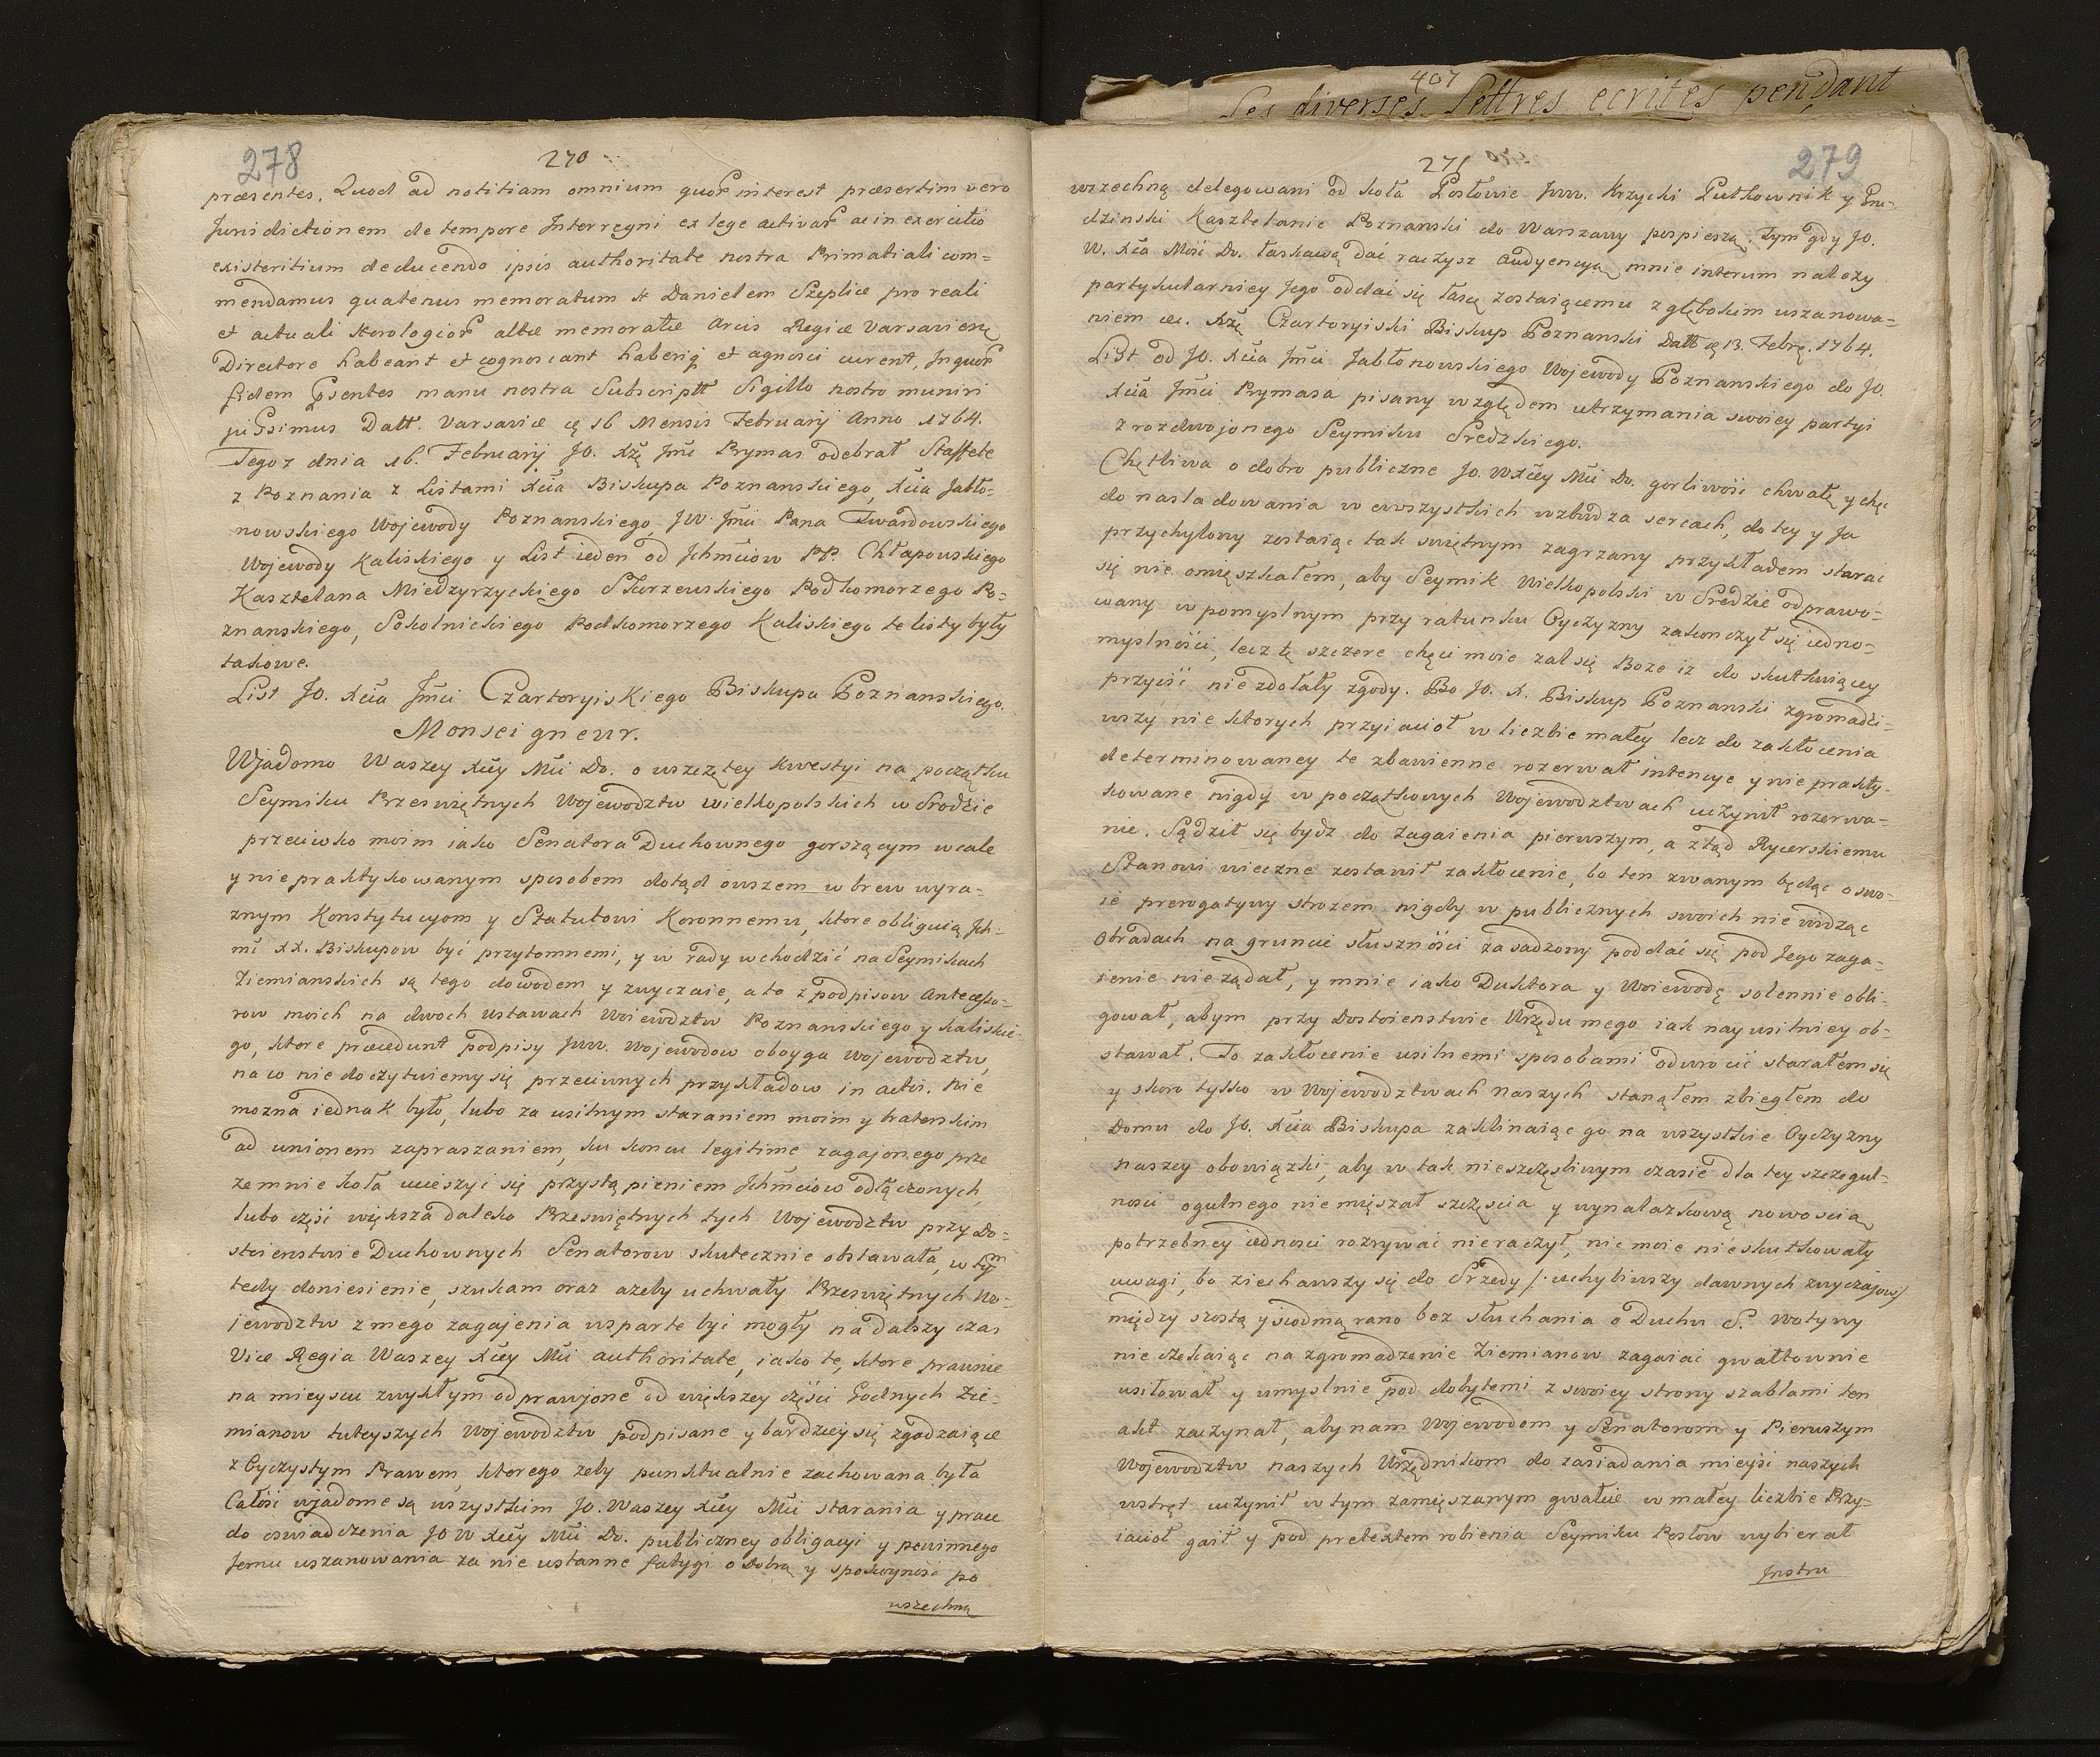 278
270
præsentes. Quod ad notitiam omnium quor interest præsertim vero
Jurisdictionem de tempore Interregni ex lege activar ac in exercitio
existentium deducendo ipsis authoritate nostra Primatiali com=
mendamus quatenus memoratum Danielem Szeplice pro reali
et actuali Horologior altæ memoratæ Arcis Regiæ Varsavien
Directore habeant et cognoscant haberiq et agnosci curent, Inquor
fidem Psentes manu nostra Subscriptt Sigillo nostro muniri
jussimus Datt. Varsaviæ 16 Mensis Februarij Anno 1764.
Tegoz dnia 16. Februarij JO. Xżę Jmć Prymas odebrał Staffete
z Poznania z Listami Xcia Biskupa Poznanskiego, Xcia Jabło=
nowskiego Wojewody Poznanskiego, JW. Jmci Pana Twardowskiego
Wojewody Kaliskiego y List ieden od Ichmciow PP. Chłapowskiego
Kasztelana Miedzyrzyckiego Skorzewskiego Podkomorzego Po=
znanskiego, Sokolnickiego Podkomorzego Kaliskiego te listy były
takowe.
List JO. Xcia Jmci Czartoryiskiego Biskupa Poznanskiego.
Monseigneur.
Wjadomo Waszey Xcey Mci Do. o wszczętey kwestyi na początku
Seymiku Przeswiętnych Wojewodztw wielkopolskich w Srodzie
przeciwko moim iako Senatora Duchownego gorszącym wcale
y nie praktykowanym sposobem dotąd owszem wbrew wyra=
znym Konstytucyom y Statutowi Koronnemu, ktore obliguią Ich=
mć XX. Biskupow być przytomnemi, y w rady wchodzić na Seymikach
Ziemianskich są tego dowodem y zwyczaie, a to z podpisow Antecesso=
row moich na dwoch ustawach Woiewodztw Poznanskiego y kaliskie=
go, ktore præcedunt podpisy JWW. Wojewodow oboyga Wojewodztw,
na co nie doczytuiemy się przeciwnych przykładow in actis. Nie
mozna iednak było, lubo za usilnym staraniem moim y braterskim
ad unionem zapraszaniem, ku koncu legitime zagajonego prze
zemnie koła ucieszyć się przystąpieniem Ichmciow odłączonych,
lubo częsć większa daleko Przeswiętnych tych Wojewodztw przy Do=
stoienstwie Duchownych Senatorow skutecznie obstawała, w tym
tedy doniesienie, szukam oraz azeby uchwały Przeswiętnych Wo=
jewodztw z mego zagajenia wsparte być mogły na dalszy czas
Vice Regia Waszey Xcey Mci authoritate, iako te, ktore prawnie
na mieyscu zwykłym odprawjone od większey częsci Godnych Zie=
mianow tuteyszych Wojewodztw podpisane y bardziey się zgadzaiące
z Oyczystym Prawem, ktorego zeby punktualnie zachowana była
Całosć wjadome są wszystkim JO. Waszey Xcey Mci starania y prace
do oswiadczenia JO W Xcey Mci Do. publiczney obligacyi y powinnego
Jemu uszanowania za nie ustanne fatygi o dobrą y spokoynosc po
wszechną
407
Les diverses Lettres ecrites pendant
279
271
wszechną delegowani od koła Posłowie JWW. Krzycki Pułkownik y Gru=
dzinski Kasztelanic Poznanski do Warszawy pospieszą. Tym gdy JO.
W. Xca Mość Do. łaskawą dać raczysz Audyencyą, mnie interum nalezy
partykularniey Jego oddać się łasce zostaiącemu z głębokim uszanowa=
niem etc. Xżę Czartoryiski Biskup Poznanski Datt 13. Febr. 1764.
List od JO. Xcia Jmci Jabłonowskiego Wojewody Poznanskiego do JO.
Xcia Jmci Prymasa pisany względem utrzymania swoiey partyi
z rozdwojonego Seymiku Sredzkiego.
Chętliwa o dobro publiczne JO. WXcey Mci Do. gorliwość chwałę y chęć
do nasladowania w ewszystkich wzbudza sercach, do tey y Ja
przychylony zostaiąc tak swiętnym zagrzany przykładem starać
się nie omięszkałem, aby Seymik Wielkopolski w Sredzie odprawo=
wany w pomyslnym przy ratunku Oyczyzny zakonczył się iedno=
myslności, lecz tę szczere chęci moie zal się Boze iz do skutkuiącey
przyiść nie zdołały zgody. Bo JO. X. Biskup Poznanski zgromadzi=
wszy nie ktorych przyiacioł w liczbie małey lecz do zakłocenia
determinowaney te zbawienne rozerwał intencye y nie prakty=
kowane nigdy w początkowych Wojewodztwach uczynił rozerwa=
nie. Sądził się bydz do zagaienia pierwszym, a ztąd Rycerskiemu
Stanowi wieczne zostawił zakłocenie, bo ten zwanym będąc o swo=
ie prerogatywy strozem nigdy w publicznych swoich nie widząc
Obradach na gruncie słusznosci zasadzony poddać się pod Jego zaga=
ienie nie ządał, y mnie iako Duktora y Woiewodę solennie obli=
gował, abym przy Dostoienstwie Urzędu mego iak nayusilniey ob=
stawał. To zakłocenie usilnemi sposobami odwrocić starałem się
y skoro tylko w Wojewodztwach naszych stanąłem zbiegłem do
Domu do JO. Xcia Biskupa zaklinaiąc go na wszystkie Oyczyzny
naszey obowiązki, aby w tak nieszczęsliwym czasie dla tey szczegul=
nosci ogulnego nie mięszał szczęscia y wynalazkową nowoscią
potrzebney iednosci rozrywać nie raczył, nic moie nie skutkowały
uwagi, bo ziechawszy się do Srzedy /: uchybiwszy dawnych zwyczajow/
między szostą y siodmą rano bez słuchania o Duchu S. Wotywy
nie czekaiąc na zgromadzenie Ziemianow zagaiać gwałtownie
usiłował y umyslnie pod dobytemi z swoiey strony szablami ten
akt zaczynał, aby nam Wojewodom y Senatorom y Pierwszym
Wojewodztw naszych Urzędnikom do zasiadania mieysć naszych
wstręt uczynił w tym zamięszanym gwałcie w małey liczbie Przy=
iacioł gaił y pod pretextem robienia Seymiku Posłow wybierał
Instru